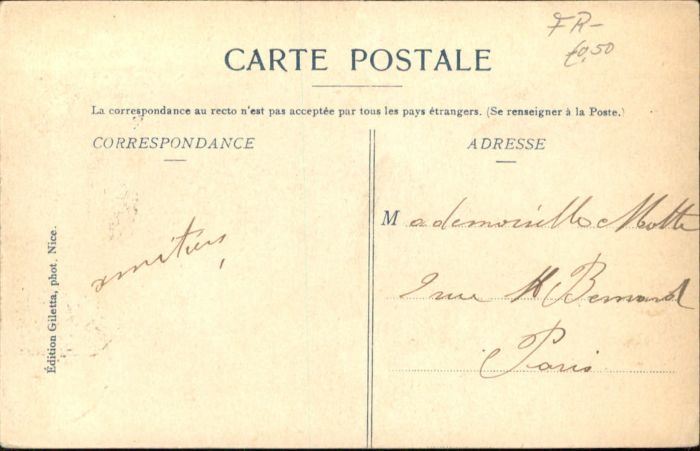 FR-
€0,50
CARTE POSTALE
La correspondance au recto n'est pas acceptée par tous les pays étrangers. (Se renseigner à la Poste.)
CORRESPONDANCE
ADRESSE
Édition Giletta, phot. Nice.
amitiés
Mademoiselle Motte
2 rue St Bernard
Paris